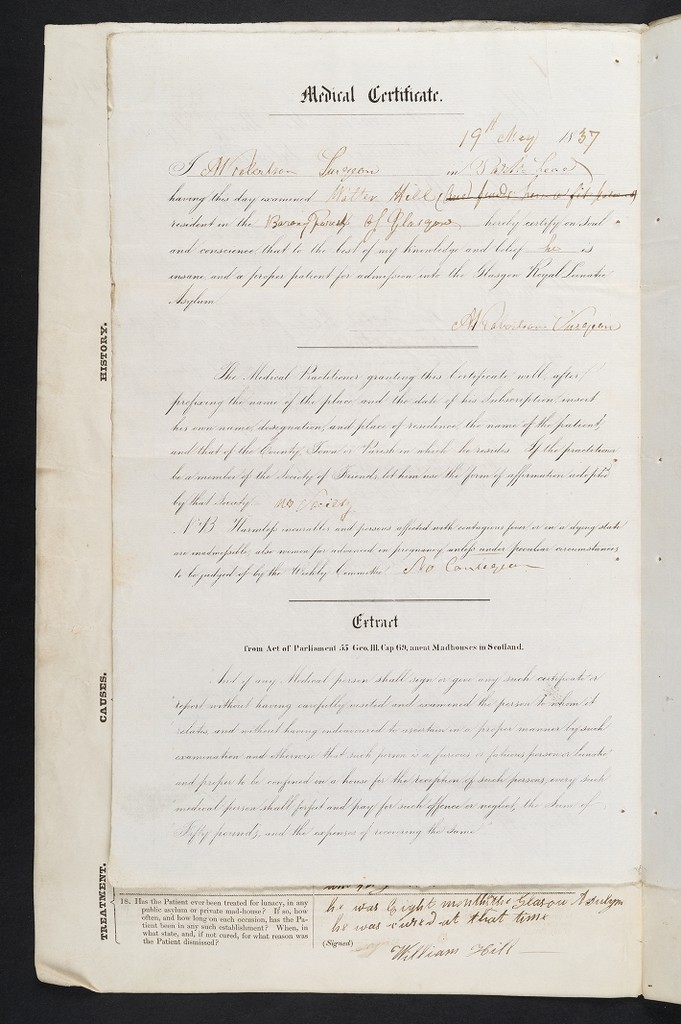 Medical Certificate.
19th May 1837
I A Robertson Surgeon in
having this day examined Walter Hill
resident in the Barony Parish of Glasgow hereby certify on soul
and conscience, that to the best of my knowledge and belief he is
insane, and a proper patient for admission into the Glasgow Royal Lunatic
Asylum
A Robertson Surgeon
The Medical Practitioner granting this Certificate, will, after
prefixing the name of the place and the date of his Subscription, insert
his own name, designation, and place of residence, the name of the patient,
and that of the County, Town or Parish in which he resides. If the practitioner
be a member of the Society of Friends, let him use the form of affirmation adopted
by that Society. no
N.B. Harmless incurables and persons affected with contagious fever or in a dying state
are inadmissible, also women far advanced in pregnancy unless under peculiar circumstances
to be judged of by the Weekly Committee. No Contagion
Extract
from Act of Parliment 55 Geo. III. Cap 69, anent Madhouses in Scotland.
And if any Medical person shall sign or give any such certificate or
report without having carefully visited and examined the person to whom it
relates, and without having endeavoured to ascertain in a proper manner by such
examination and otherwise that such person is a furious or fatuous person or lunatic
and proper to be confined in a house for the reception of such persons, every such
medical person shall forfeit and pay for such offence or neglect, the Sum of
Fifty pounds, and the expenses of recovering the same
HISTORY.
CAUSES.
TREATMENT.
18. Has the Patient ever been treated for lunacy, in any
public asylum or private mad-house? If so, how
often, and how long on each occasion, has the Pa-
tient been in any such establishment? When, in
what state, and, if not cured, for what reason was
the Patient dismissed?
he was Eight months the Glasgow Asulym
he was cured at that time
(Signed)
William Hill